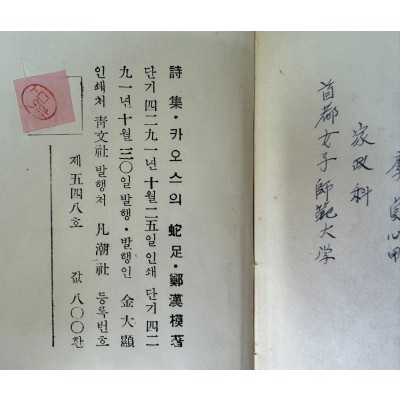 詩集·카오스의 蛇足·鄭漢模著
단기 四二九一년 十월 二五일 인쇄 단기 四二
九一년 十월 三〇일 발행·발행인 金大顯
인쇄처 靑文社 발행처 凡潮社 등록번호
제 五四八호 값 八〇〇환
首都女子師範大学
家政科